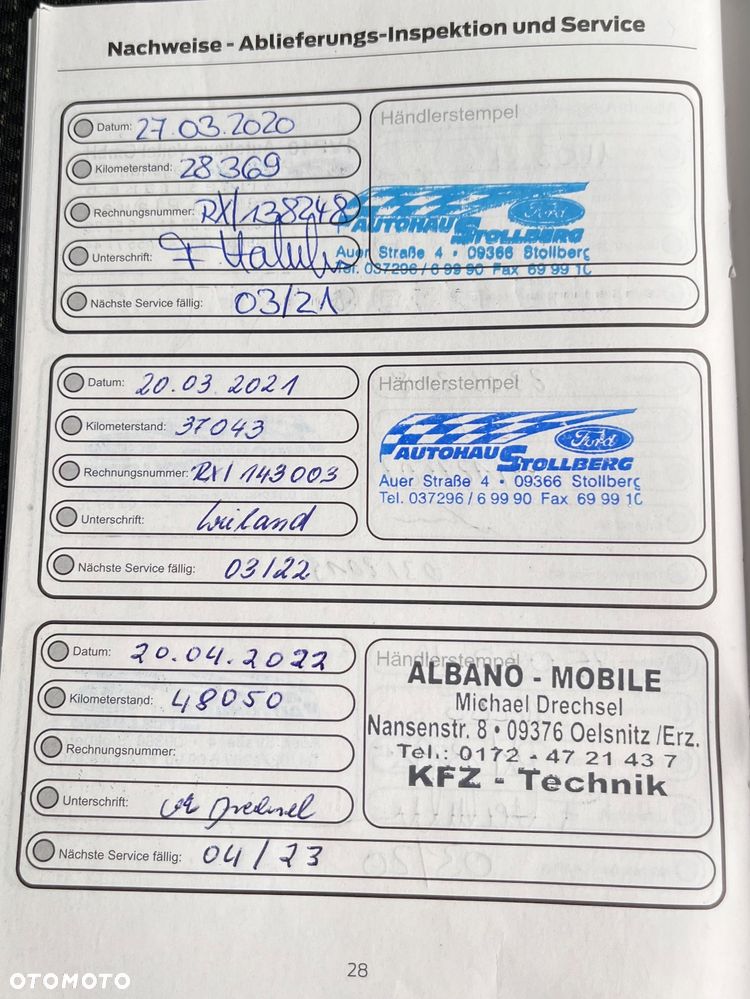 Nachweise - Ablieferungs-Inspektion und Service
Datum: 27.03.2020
Händlerstempel
Kilometerstand: 28369
Rechnungsnummer: RX/138248
Unterschrift:
AUTOHAUS STOLLBERG
Ford
Auer Straße 4 • 09366 Stollberg
Tel. 037296 / 6 99 90 Fax 69 99 10
Nächste Service fällig: 03/21
Datum: 20.03.2021
Händlerstempel
Kilometerstand: 37043
Rechnungsnummer: RX/143003
Unterschrift:
AUTOHAUS STOLLBERG
Ford
Auer Straße 4 • 09366 Stollberg
Tel. 037296 / 6 99 90 Fax 69 99 10
Nächste Service fällig: 03/22
Datum: 20.04.2022
Händlerstempel
Kilometerstand: 48050
Rechnungsnummer:
Unterschrift: Drechsel
ALBANO - MOBILE
Michael Drechsel
Nansenstr. 8 • 09376 Oelsnitz /Erz.
Tel.: 0172 - 47 21 43 7
KFZ - Technik
Nächste Service fällig: 04/23
28
OTOMOTO